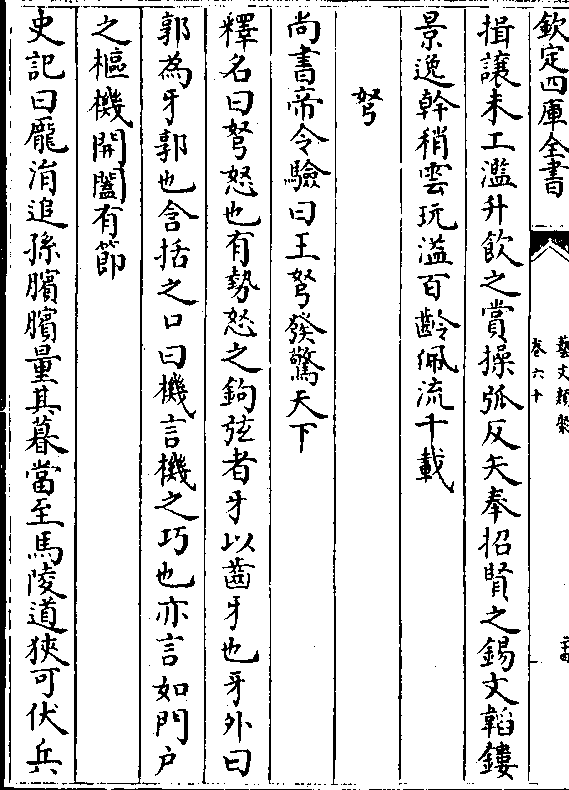 欽定四庫全書
藝文類聚
卷六十
揖讓未工濫升飲之賞操弧反矢奉招賢之錫文韜鏤
景逸幹稍雲玩溢百齡佩流千載
弩
尚書帝令驗曰王弩發驚天下
釋名曰弩怒也有勢怒之鉤弦者牙以齒牙也牙外曰
郭為牙郭也含括之口曰機言機之巧也亦言如門户
之樞機開闔有節
史記曰龎涓追孫臏臏量其暮當至馬陵道狹可伏兵